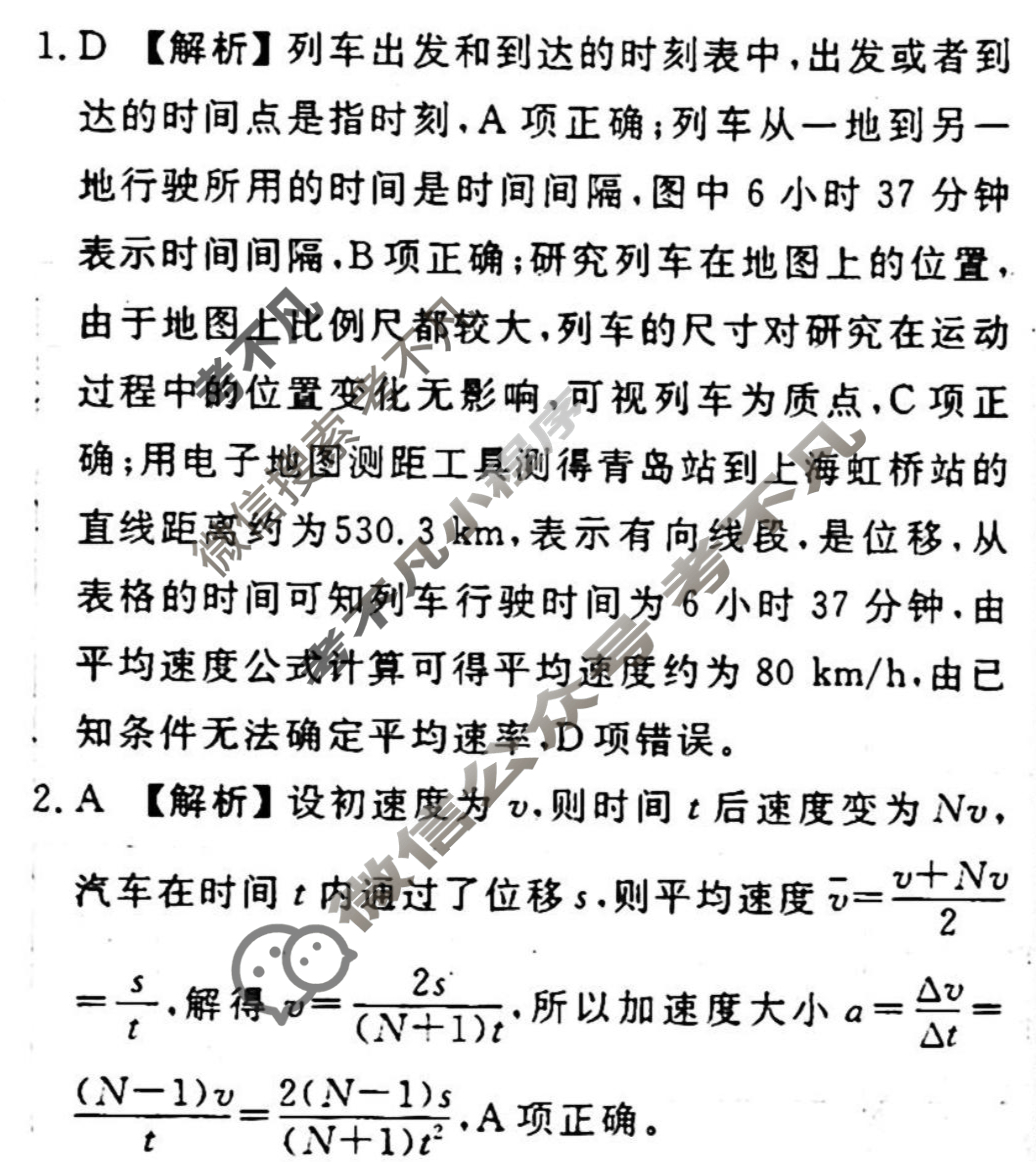 1. D 【解析】列车出发和到达的时刻表中,出发或者到
达的时间点是指时刻,A 项正确;列车从一地到另一
地行驶所用的时间是时间间隔,图中 6 小时 37 分钟
表示时间间隔,B 项正确;研究列车在地图上的位置,
由于地图上比例尺都较大,列车的尺寸对研究在运动
过程中的位置变化无影响,可视列车为质点,C 项正
确;用电子地图测距工具测得青岛站到上海虹桥站的
直线距离约为530. 3 km,表示有向线段,是位移,从
表格的时间可知列车行驶时间为 6 小时 37 分钟,由
平均速度公式计算可得平均速度约为 80 km/h,由已
知条件无法确定平均速率,D 项错误。
2. A 【解析】设初速度为 v,则时间 t 后速度变为 Nv,
汽车在时间 t 内通过了位移 s,则平均速度 v̄=(v+Nv)/2
=s/t,解得 v=2s/((N+1)t),所以加速度大小 a=Δv/Δt=
(N-1)v/t=2(N-1)s/((N+1)t²),A 项正确。
考不凡
微信搜索 考不凡
考不凡小程序
微信公众号 考不凡